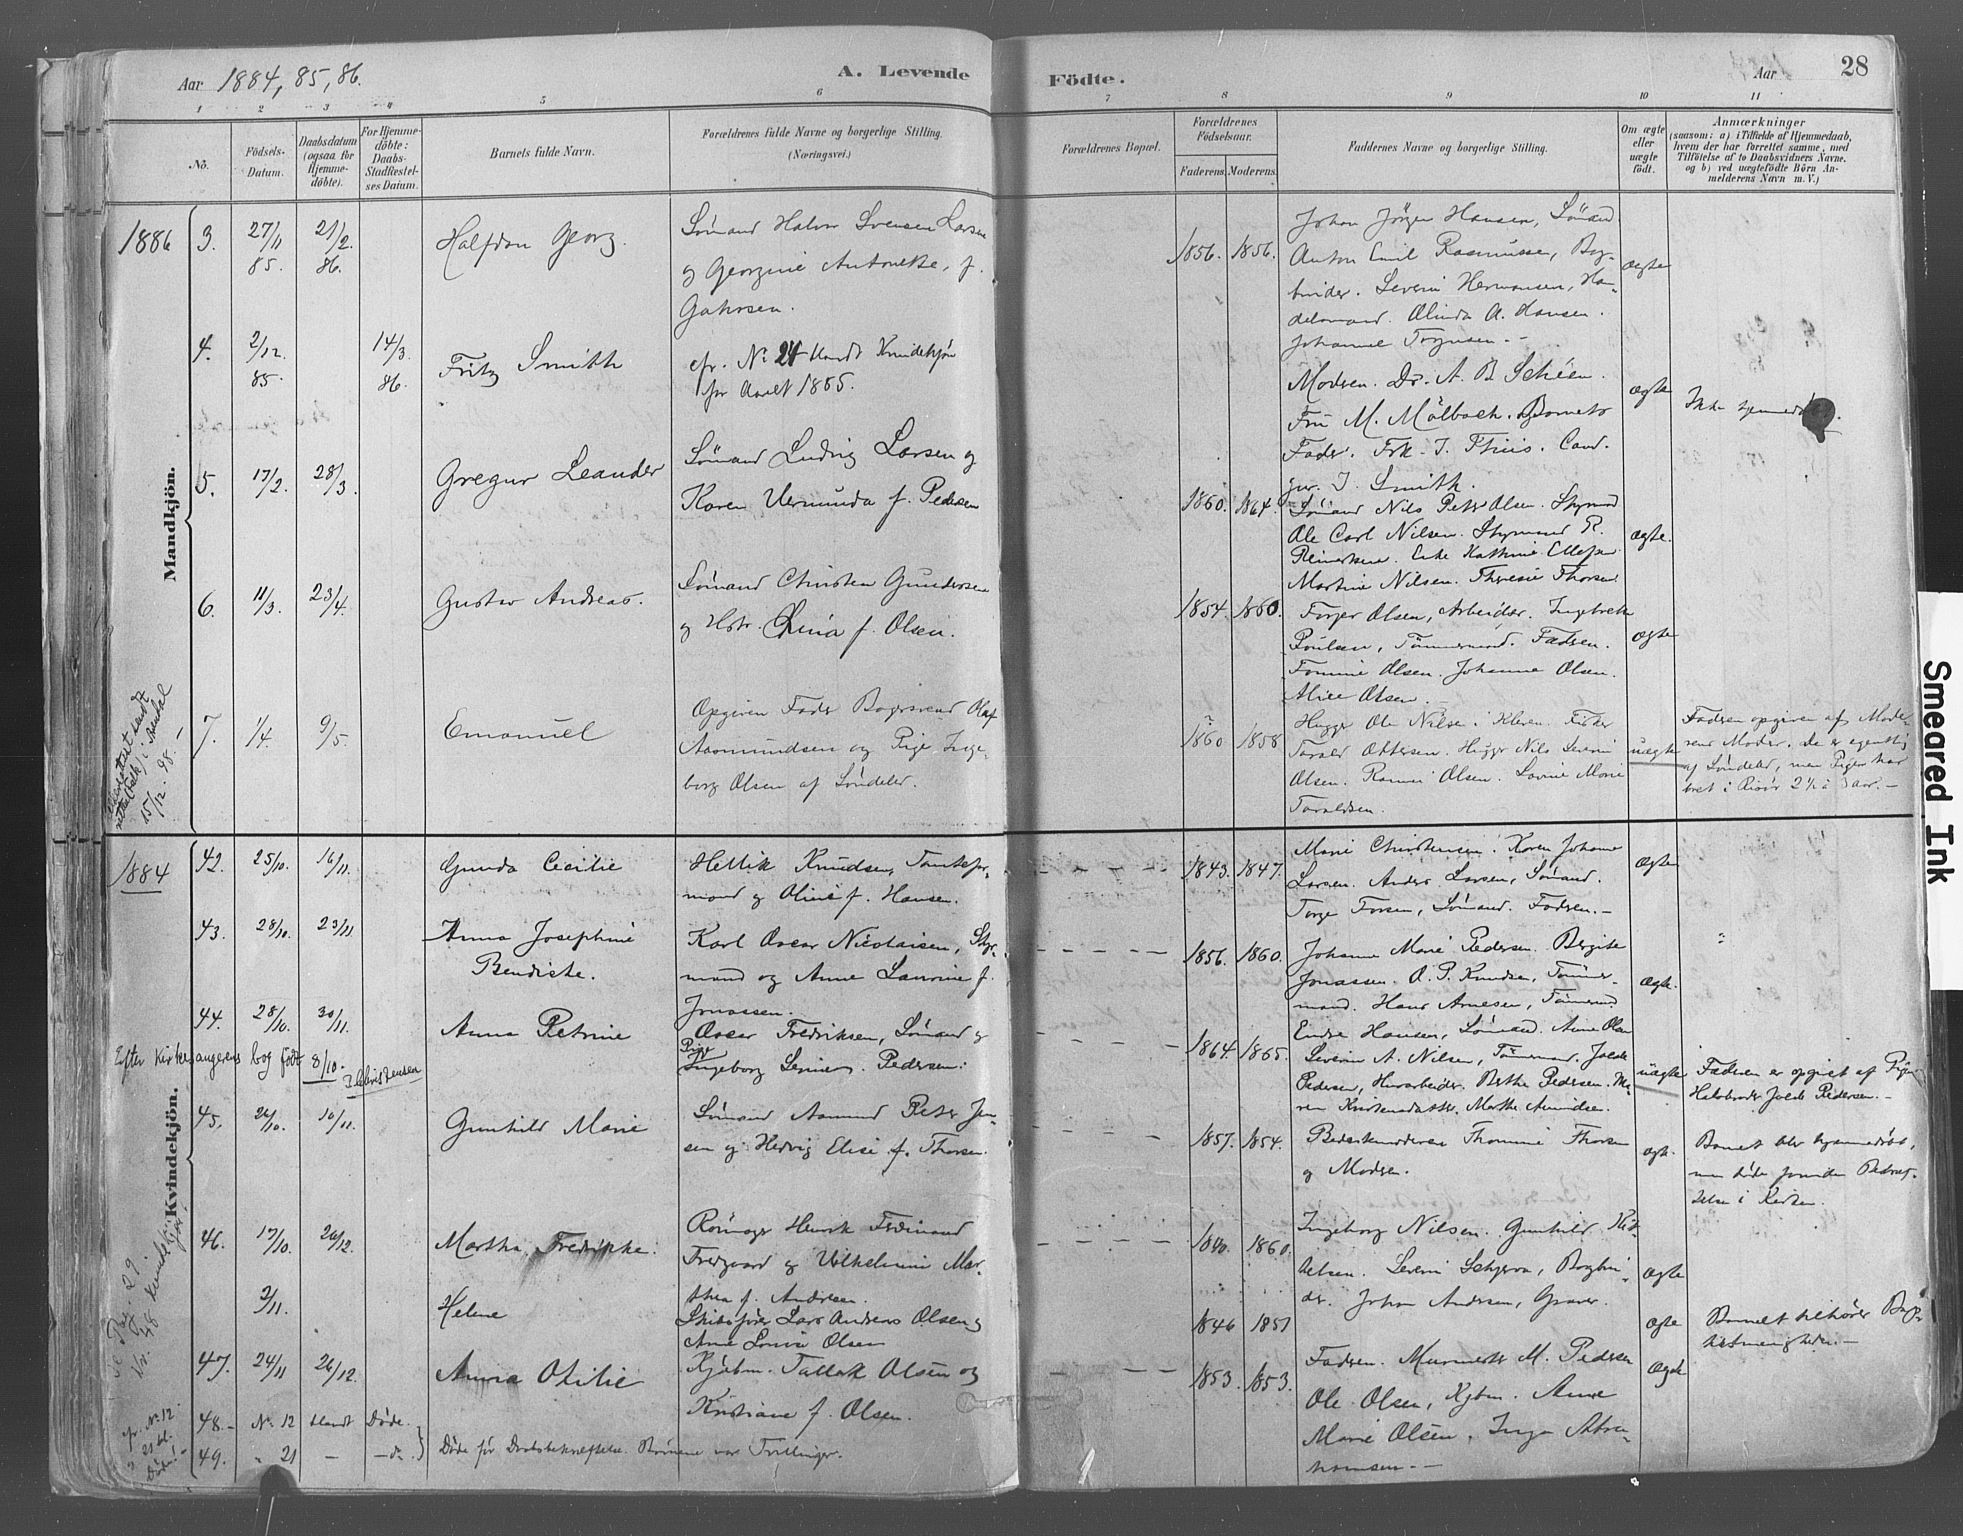 Aar 1884, 85, 86.
A. Levende Födte.
Aar
28
1 2 3 4 5 6 7 8 9 10 11
No.
Födsels-Datum.
Daabsdatum (ogsaa for Hjemmedöbte).
For Hjemmedöbte: Daabs-Stadfæstelses Datum.
Barnets fulde Navn.
Forældrenes fulde Navne og borgerlige Stilling.
(Næringsvei.)
Forældrenes Bopæl.
Forældrenes Födselsaar.
Faderens. Moderens.
Faddernes Navne og borgerlige Stilling.
Om ægte eller uægte født.
Anmærkninger
(saasom: a) i Tilfælde af Hjemmedaab,
hvem der har forrettet samme, med
Tilföielse af to Daabsvidners Navne.
og b) ved uægtefödte Börn An-
melderens Navn m. V.)
Mandkjön.
1886 3. 27/11 85. 21/2. 86. Halfdan Georg.
Sömand Halvor Svensen Larsen
og Georgine Antonette, f.
1856. 1856.
Johan Jörgen Hansen, Sömand
Anton Emil Rasmussen, Bog-
binder. Severin Hermansen, Han-
delsmand. Olinda A. Hansen.
Johanne
ægte
4. 2/12. 85. 14/3. 86. Fritz Smith
cfr. No 24 blandt Kvindekjön
for Aaret 1885.
Moderen. Dr. A. B. Schéen.
Fru M. Mölbach. Barnets
Fader. Frk. J. Thiis. Cand.
jur. J. Smith.
ægte
Ikke hjemmedöbt.
5. 17/2. 28/3. Gregur Leander
Sömand Ludvig Larsen og
Karen Vermunda f. Pedersen
1860. 1864.
Sömand Nils Peter Olsen. Styrmand
Ole Carl Nilsen. Styrmand R.
Reinertsen. Enke Kathrine Ellefsen
Martine Nilsen. Theresie Thorsen.
ægte.
6. 11/3. 23/4. Gustav Andreas.
Sömand Christen Gundersen
og Hstr. Lina f. Olsen.
1854. 1860.
Torger Olsen, Arbeider. Ingebret
Poulsen, Tömmermand. Faderen.
Tomine Olsen. Johanne Olsen.
Alice Olsen.
ægte
7. 1/4. 9/5. Emanuel
Opgiven Fader Bagersvend Olaf
Aasmundsen og Pige Inge-
borg Olsen af Söndeled.
1860 1858
Hugger Ole Nilsen i Kleven. Fisker
Tarald Ottersen. Hugger Nils Severin
Olsen. Ramine Olsen. Lovine Marie
Taraldsen.
uægte
Faderen opgiven af Mode-
rens Moder. De er egentlig
af Söndeled, men Pigen har
været i Risör 2 1/2 à 3 aar. –
i Arendal
15/12. 98.
Kvindekjön.
1884 42. 25/10. 16/11. Gunda Cecilie
Hellik Knudsen, Tomtefor-
mand og Oline f. Hansen.
1843. 1847.
Marie Christensen. Karen Johanne
Larsen. Anders Larsen, Sömand.
Torge Torsen, Sömand. Faderen. –
ægte
43. 28/10. 23/11. Anna Josephine
Bendicte.
Karl Oscar Nicolaisen, Styr-
mand og Anne Laurine f.
Jonassen.
1856. 1860.
Johanne Marie Pedersen. Bergite
Jonassen. O. P. Knudsen, Tömmer-
mand. Hans Arnesen, Tömmermand
ægte.
44. 28/10. 30/11. Anna Petrine
Oscar Fredriksen, Sömand og
Pige
Ingeborg Severine Pedersen.
1864. 1865.
Endre Hansen, Sömand. Anne Olsen
Severin A. Nilsen, Tömmermand. Joldk
Pedersen, Havnearbeider. Berthe Pedersen. Ma-
ren Kristensdatter. Marthe Amundsen.
uægte
Faderen er opgivet af Pigens
Halvbroder Pedersen. –
Efter Kirkesangerens bog født 8/10. I. Christensen
45. 26/10. 16/11. Gunhild Marie
Sömand Aamund Peter Jen-
sen og Hedvig Elise f. Thorsen.
1857. 1854.
Bedsteforældrene Thommine Thorsen
og Moderen.
ægte.
Barnet blev hjemmedöbt,
men döde forinden Bekræf-
telse i Kirken.
46. 17/10. 26/12. Martha Fredrikke.
Henrik Ferdinand
Fredgaard og Vilhelmine Mar-
thea f. Andersen.
1840. 1860.
Ingeborg Nilsen. Gunhild Kit-
telsen. Severin Schjerva, Bogbin-
der. Johan Andersen, Graver.
ægte
2/11. Helene
Skibsförer Lars Andreas Olsen og
Anne Lovise Olsen
1846 1851
ægte
Barnet tilhörer Bap-
tistmenigheden. –
47. 24/11 26/12. Anna Otilie
Kjöbm. Tallak Olsen og
Kristiane f. Olsen.
1853. 1853.
Faderen. Murmester M. Pedersen
Ole Olsen, Kjbm. Anne
Marie Olsen, Inga Abra-
hamsen. –
Ægte
48. – No 12 blandt Döde.
49. " 21 – – do.
Döde för Daabsbekræftelse. Börnene var Trillinger.
Pag. 29
No. 48 Kvindekjön
cfr. No 12
& 21 bl.
Döde! –
Smeared Ink